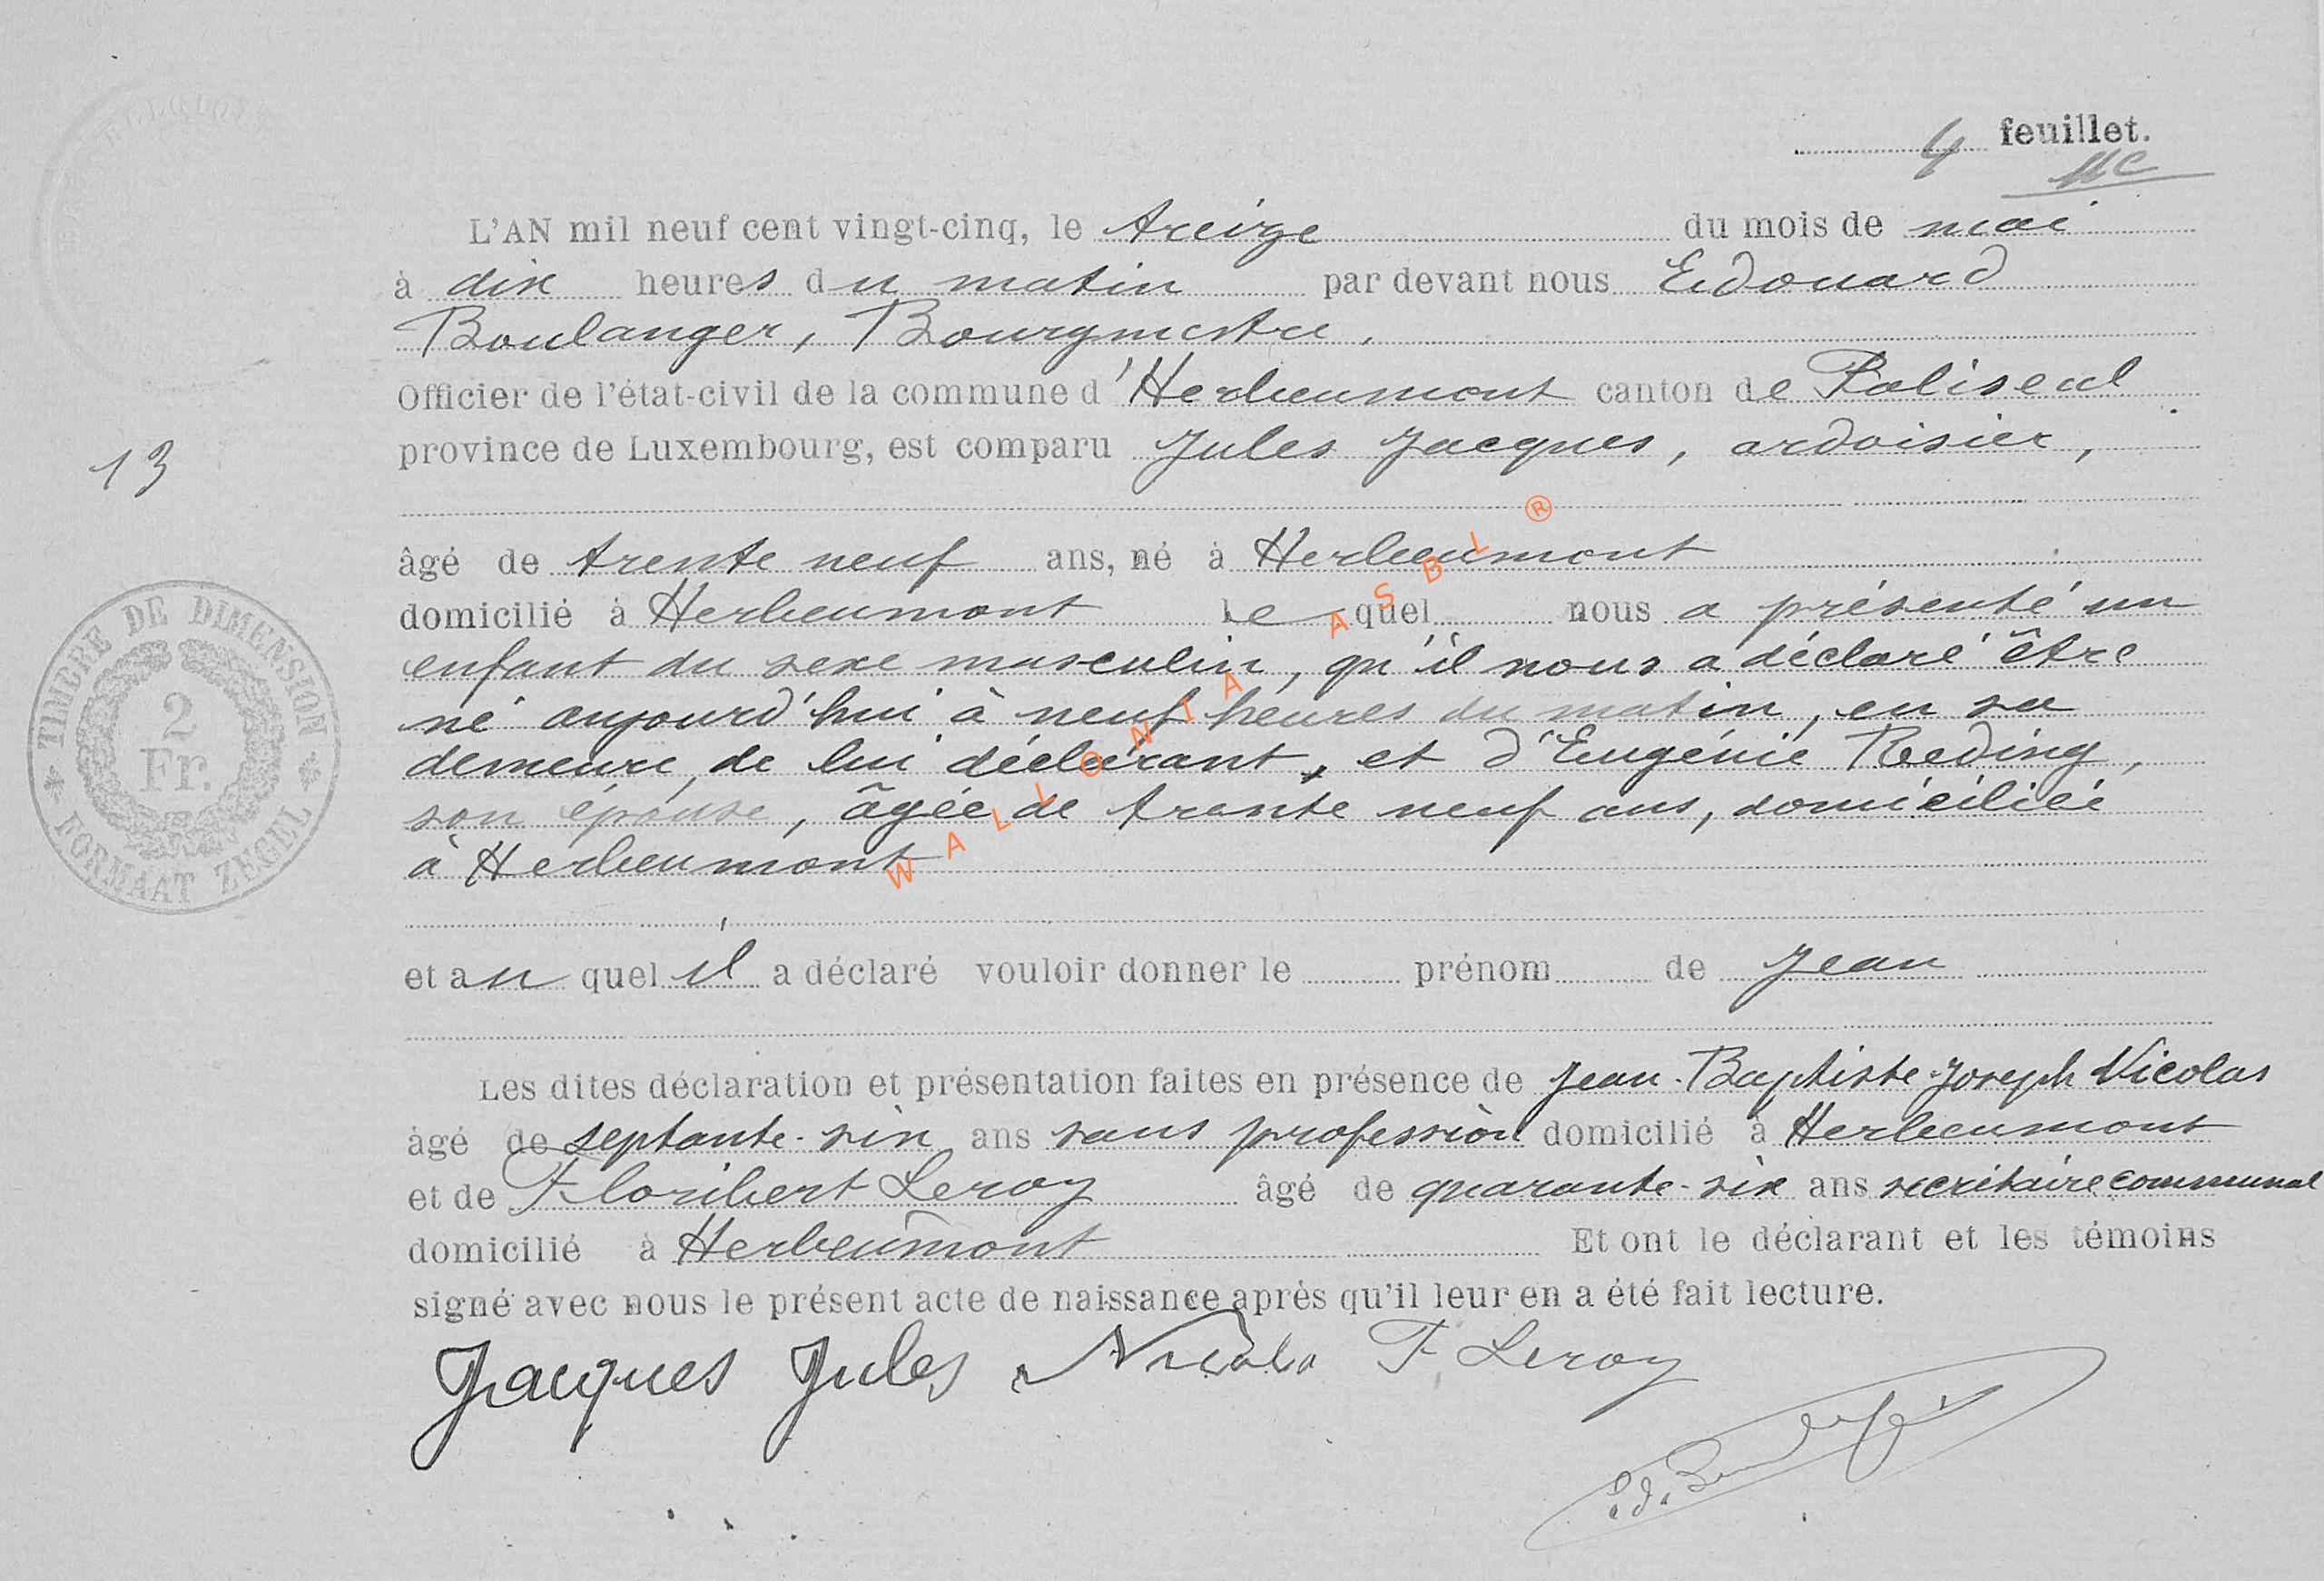 4 feuillet.
L'AN mil neuf cent vingt-cinq, le treize du mois de mai
à dix heures du matin par devant nous Edouard
Boulanger, Bourgmestre,
Officier de l'état-civil de la commune d'Herbeumont canton de Paliseul
13
province de Luxembourg, est comparu Jules Jacques, ardoisier,
âgé de trente neuf ans, né à Herbeumont
domicilié à Herbeumont lequel nous a présenté un
enfant du sexe masculin, qu'il nous a déclaré être
né aujourd'hui à neuf heures du matin, en sa
demeure, de lui déclarant, et d'Eugénie Reding,
son épouse, âgée de trente neuf ans, domiciliée
à Herbeumont
WALLONIA ASBL ®
TIMBRE DE DIMENSION
2
Fr.
FORMAAT ZEGEL
et au quel il a déclaré vouloir donner le prénom de Jean
Les dites déclaration et présentation faites en présence de Jean-Baptiste-Joseph Nicolas
âgé de septante-six ans sans profession domicilié à Herbeumont
et de Floribert Leroy âgé de quarante-six ans secrétaire communal
domicilié à Herbeumont Et ont le déclarant et les témoins
signé avec nous le présent acte de naissance après qu'il leur en a été fait lecture.
Jacques Jules Nicolas F. Leroy